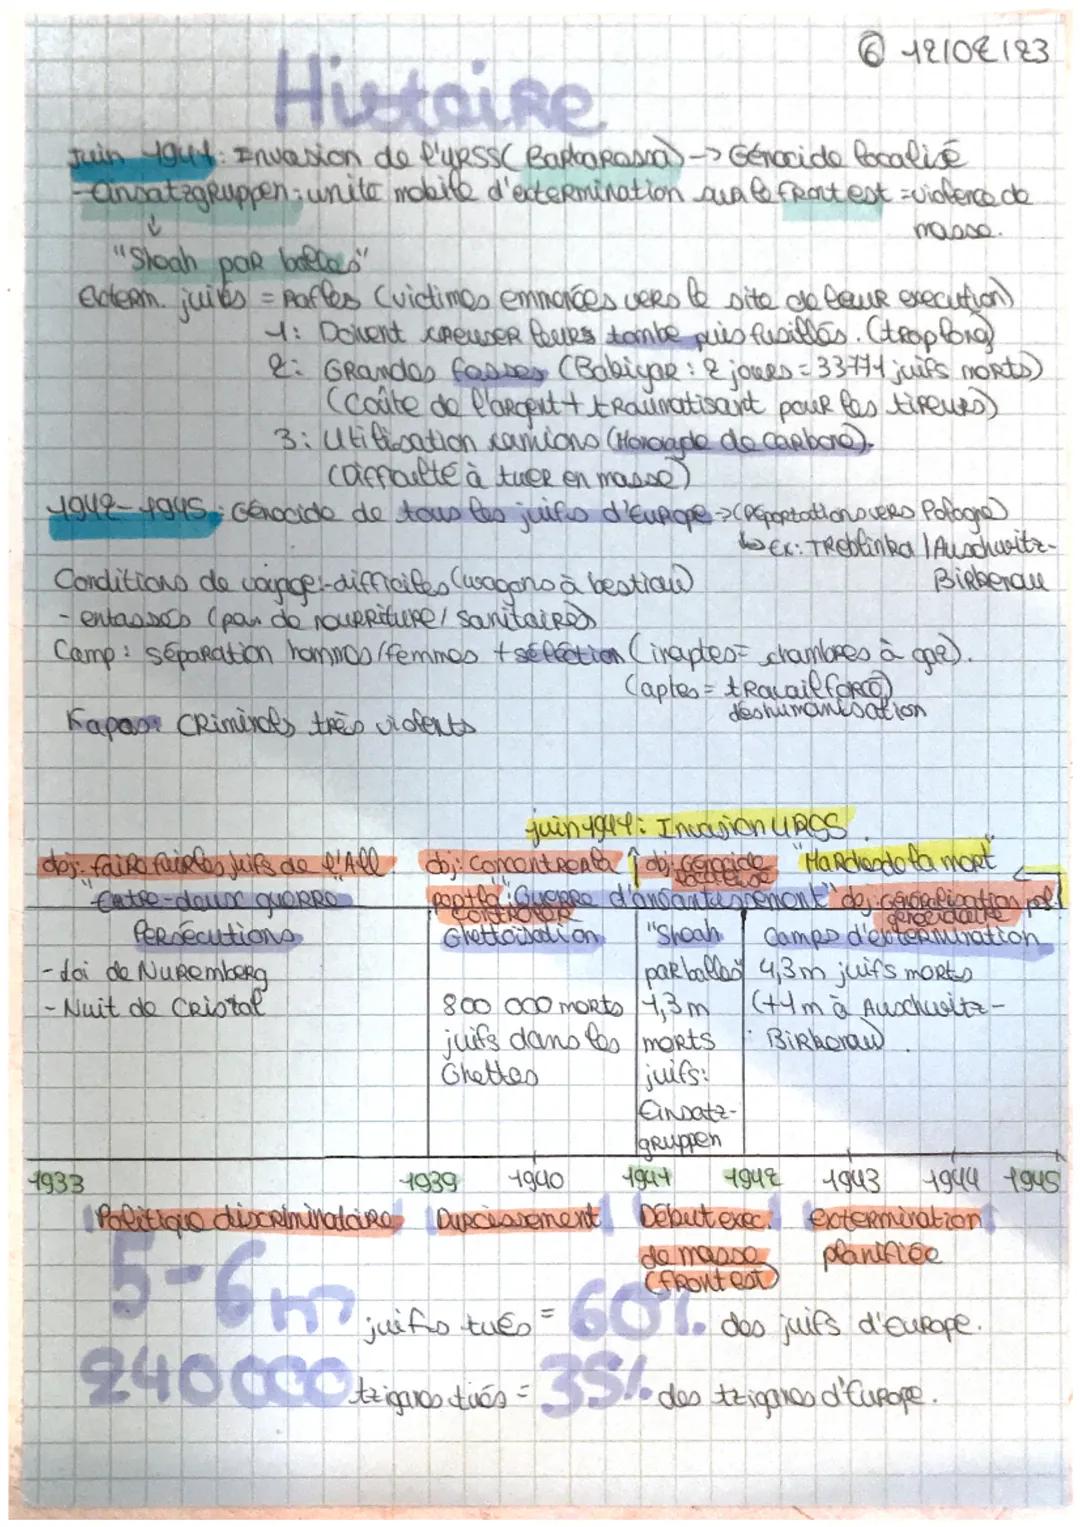 ⑥ 12/02/23
Histoire
Juin 1941: Invasion de l'URSS (Barbarossa) -> Génocide localisé
- Einsatzgruppen: unité mobile d'extermination sur le front est = violence de
masse.
↓
"Shoah par balles"
Exterm. juifs = Rafles (victimes emmenées vers le site de leur execution)
1: Doivent creuser leurs tombe puis fusillés. (trop long)
2: Grandes fosses (Babiyar: 2 jours = 33771 juifs morts)
(Coûte de l'argent + traumatisant pour les tireurs)
3: Utilisation camions (Monoxyde de carbone).
(Difficulté à tuer en masse)
1942-1945: Génocide de tous les juifs d'Europe -> (Déportations vers Pologne)
↳ Ex: Treblinka / Auschwitz-
Birkenau
Conditions de voyage: - difficiles (wagons à bestiau)
- entassés (pas de nourriture / sanitaires)
Camp: séparation hommes/femmes + sélection (inaptes = chambres à gaz).
(aptes = travail forcé)
déshumanisation
Kapos: Criminels très violents
juin 1941: Invasion URSS
obj: faire fuir les juifs de l'All. obj: Concentrer la ↑ obj: Génocide "Marches de la mort"
localisé
"Entre-deux guerre" pop + la "Guerre d'anéantissement" obj: généralisation pol.
contrôler génocidaire
Persécutions Ghettoïsation "Shoah Camps d'extermination
- Loi de Nuremberg par balles" 4,3m juifs morts
- Nuit de Cristal 800 000 morts 1,3 m (+1m à Auschwitz-
juifs dans les morts Birkenau).
Ghettos juifs:
Einsatz-
gruppen
1933 1939 1940 1941 1942 1943 1944 1945
Politique discriminatoire Durcissement Début exec. extermination
de masse planifiée
(front est)
5-6m juifs tués = 60% des juifs d'Europe.
240 000 tziganes tués = 35% des tziganes d'Europe.